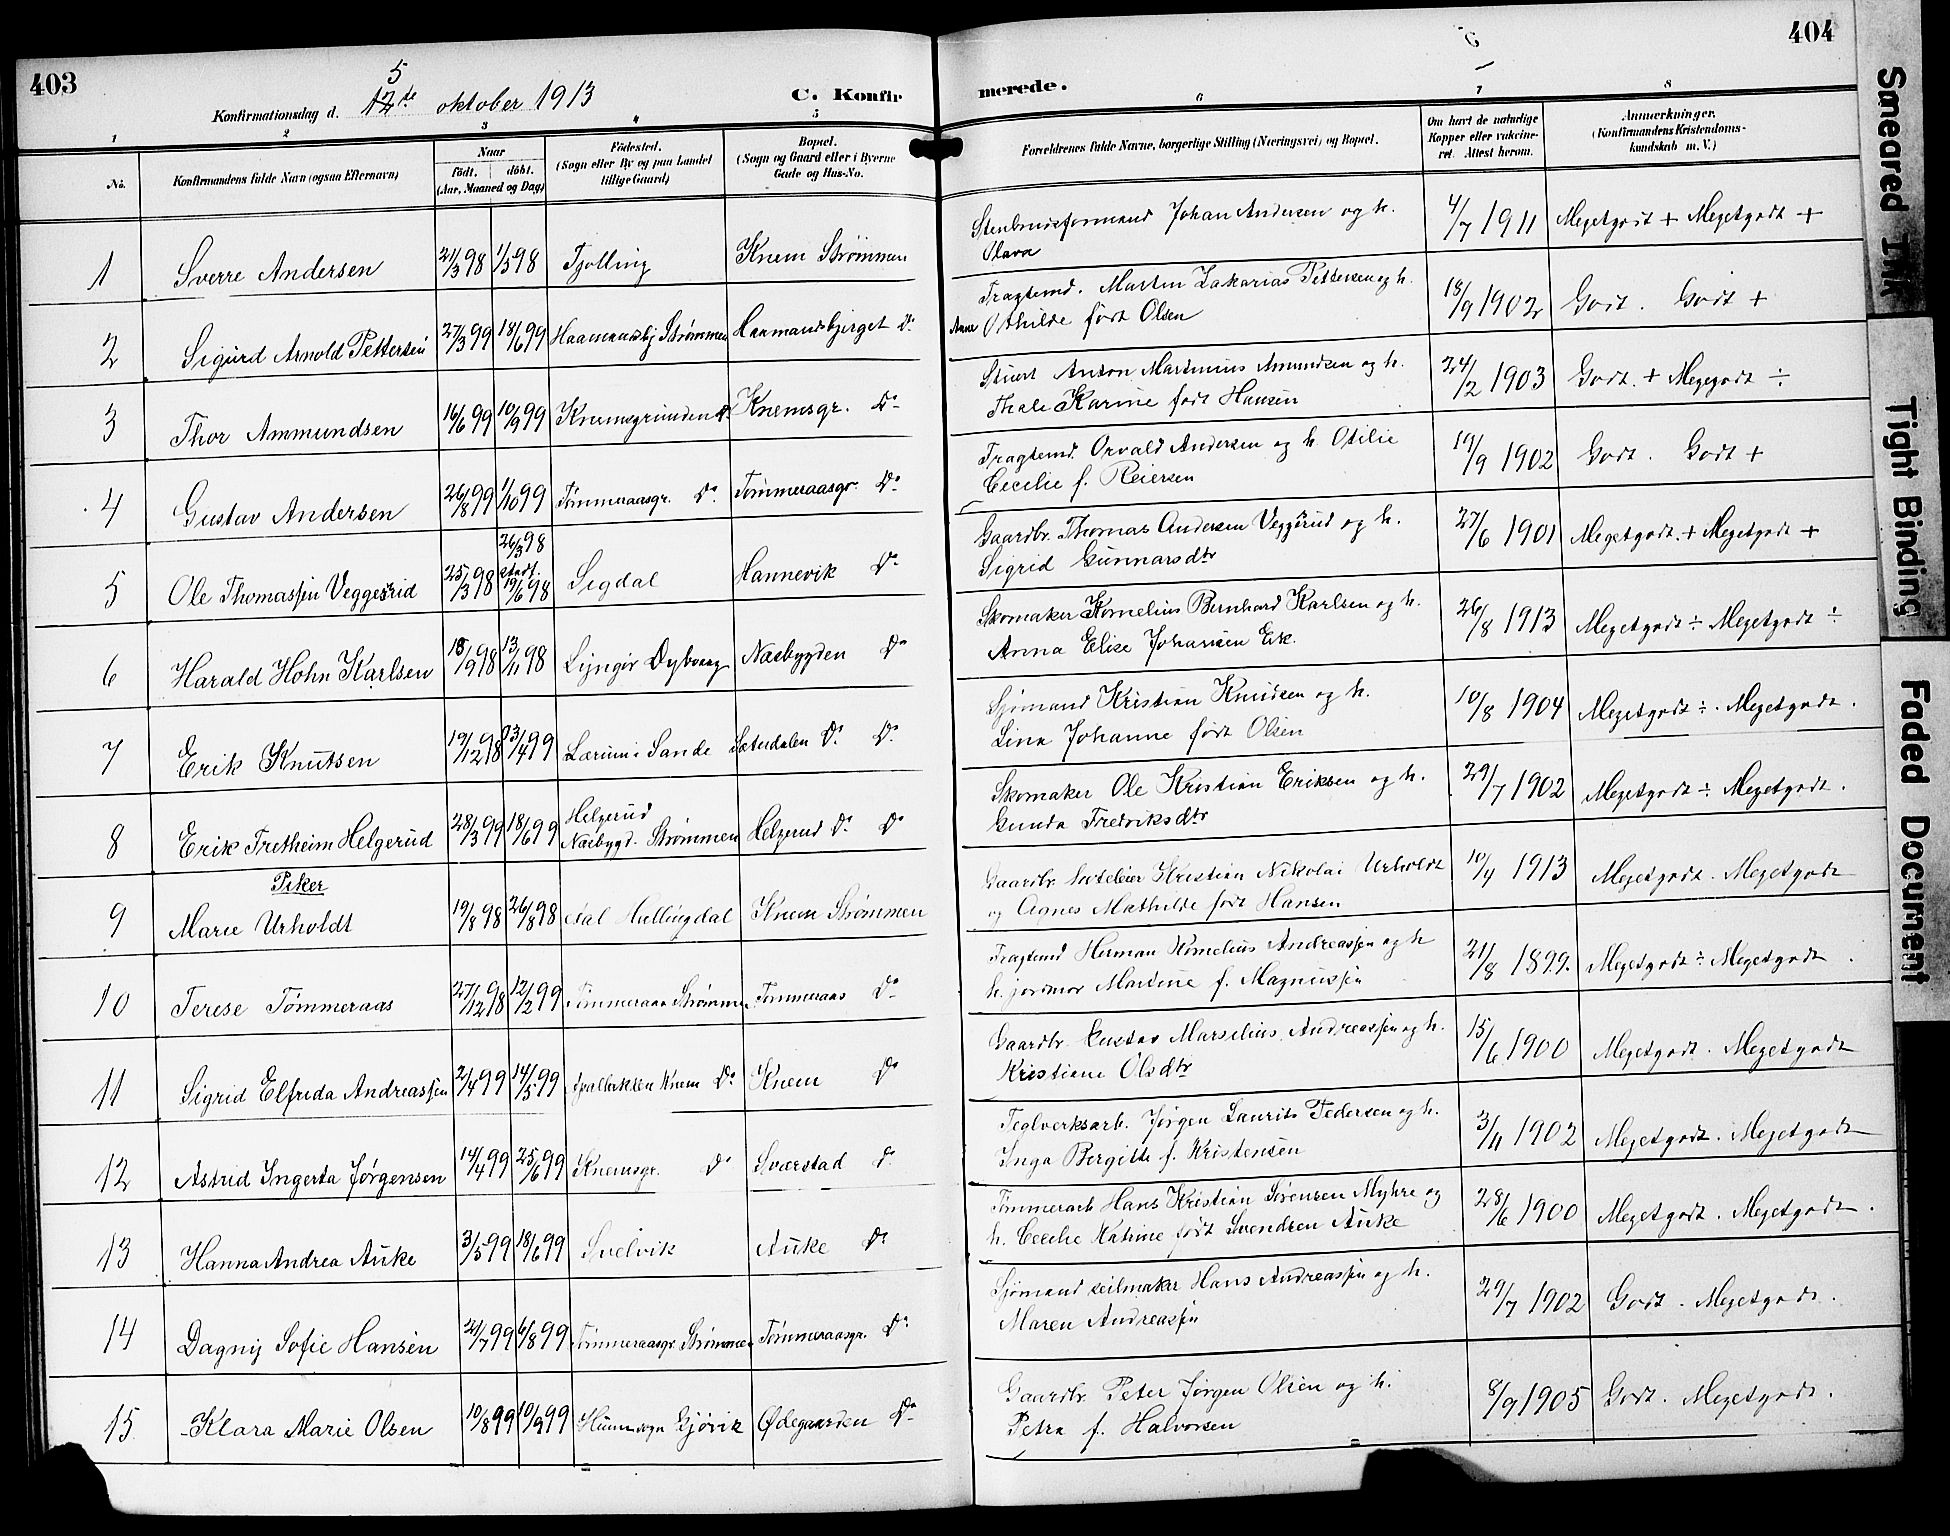 403
5
12te oktober 1913
Konfirmationsdag d.
C. Konfir
1 2 3 4 5
No.
Konfirmandens fulde Navn (ogsaa Efternavn)
Naar
født. døbt.
(Aar, Maaned og Dag)
Fødested.
(Sogn eller By og paa Landet
tillige Gaard)
Bopæl.
(Sogn og Gaard eller i Byerne
Gade og Hus-No.
1 Sverre Andersen 21/3 98 1/5 98 Tjølling Knem Strømmen
2 Sigurd Arnold Pettersen 27/3 99 18/6 99 Haamandsbj Strømmen Haamandsbjerget Do
3 Thor Ammundsen 16/6 99 10/9 99 Knemsgrunden Do Knemsgr. Do
4 Gustav Andersen 26/8 99 1/10 99 Tømmeraasgr. Do Tømmeraasgr. Do
26/3 98
stadf.
5 Ole Thomassen Veggesrid 25/3 98 19/6 98 Sigdal Hannevik Do
6 Harald Hohn Karlsen 18/9 98 13/11 98 Lyngør Dybvaag Næsbygden Do
7 Erik Knutsen 19/12 98 23/4 99 Lærum i Sande Sæterdalen Do Do
Helgerud
8 Erik Fretheim Helgerud 28/3 99 18/6 99 Næsbygd. Strømmen Helgerud Do Do
Piker
9 Marie Urholdt 19/8 98 26/8 98 Aal Hallingdal Knem Strømmen
10 Terese Tømmeraas 27/12 98 12/2 99 Tømmeraas Strømmen Tømmeraas Do
11 Sigrid Elfrida Andreassen 2/4 99 14/5 99 Knem Do Knem Do
12 Astrid Ingerta Jørgensen 14/4 99 25/6 99 Knemsgr. Do Sværstad Do
13 Hanna Andrea Auke 3/5 99 18/6 99 Svelvik Auke Do
14 Dagny Sofie Hansen 21/7 99 6/8 99 Tømmeraasgr. Strømmen Tømmeraasgr. Do
15 Klara Marie Olsen 10/8 99 10/9 99 Hunn sogn Gjøvik Ødegaarden Do
404
merede.
6 7 8
Forældrenes fulde Navne, borgerlige Stilling (Næringsvei) og Bopæl.
Om havt de naturlige
Kopper eller vakcine-
ret. Attest herom.
Anmærkninger.
(Konfirmandens Kristendoms-
kundskab m. V.)
Stenbrudsformand Johan Andersen og h. 4/7 1911 Megetgodt + Megetgodt +
Olava
Fragtemd. Martin Zakarias Pettersen og h. 18/9 1902 Godt. Godt +
Anne Othilde født Olsen
Stuert Anton Martinius Amundsen og h. 24/2 1903 Godt. + Megegodt ÷
Thale Karine født Hansen
Fragtemd. Orvald Andersen og h. Otilie 19/9 1902 Godt. Godt +
Cecilie f. Reiersen
Gaardbr. Thomas Andersen Veggerud og h. 27/6 1901 Megetgodt. + Megetgodt +
Sigrid Gunnarsdtr
Skomaker Kornelius Bernhard Karlsen og h. 26/8 1913 Megetgodt ÷ Megetgodt ÷
Anna Elise Johansen Erk.
Sjømand Kristian Knudsen og h. 10/8 1904 Megetgodt ÷. Megetgodt.
Lina Johanne født Olsen
Skomaker Ole Kristian Eriksen og h. 29/7 1902 Megetgodt ÷ Megetgodt.
Gunda Fredriksdtr
Gaardbr. Kristian Nikolai Urholdt 10/4 1913 Megetgodt. Megetgodt
og Agnes Mathilde født Hansen
Fragtemd Herman Kornelius Andreassen og h 21/8 1899. Megetgodt ÷ Megetgodt.
h. jordmor Martine f. Magnussen
Gaardbr. Gustav Marselius Andreassen og h. 15/6 1900 Megetgodt. Megetgodt
Kristiane Olsdtr
Teglverksarb. Jørgen Laurits Pedersen og h. 3/11 1902 Megetgodt. Megetgodt
Inga Bergitte f. Kristensen
Tømmerarb Hans Kristian Sørensen Myhre og 28/6 1900 Megetgodt. Megetgodt.
h. Cecilie Katrine født Svendsen Auke
Sjømand seilmaker Hans Andreassen og h. 29/7 1902 Godt. Megetgodt.
Maren Andreassen
Gaardbr. Peter Jørgen Olsen og h. 8/9 1905 Godt. Megetgodt.
Petra f. Halvorsen
Smeared Ink
Tight Binding
Faded Document